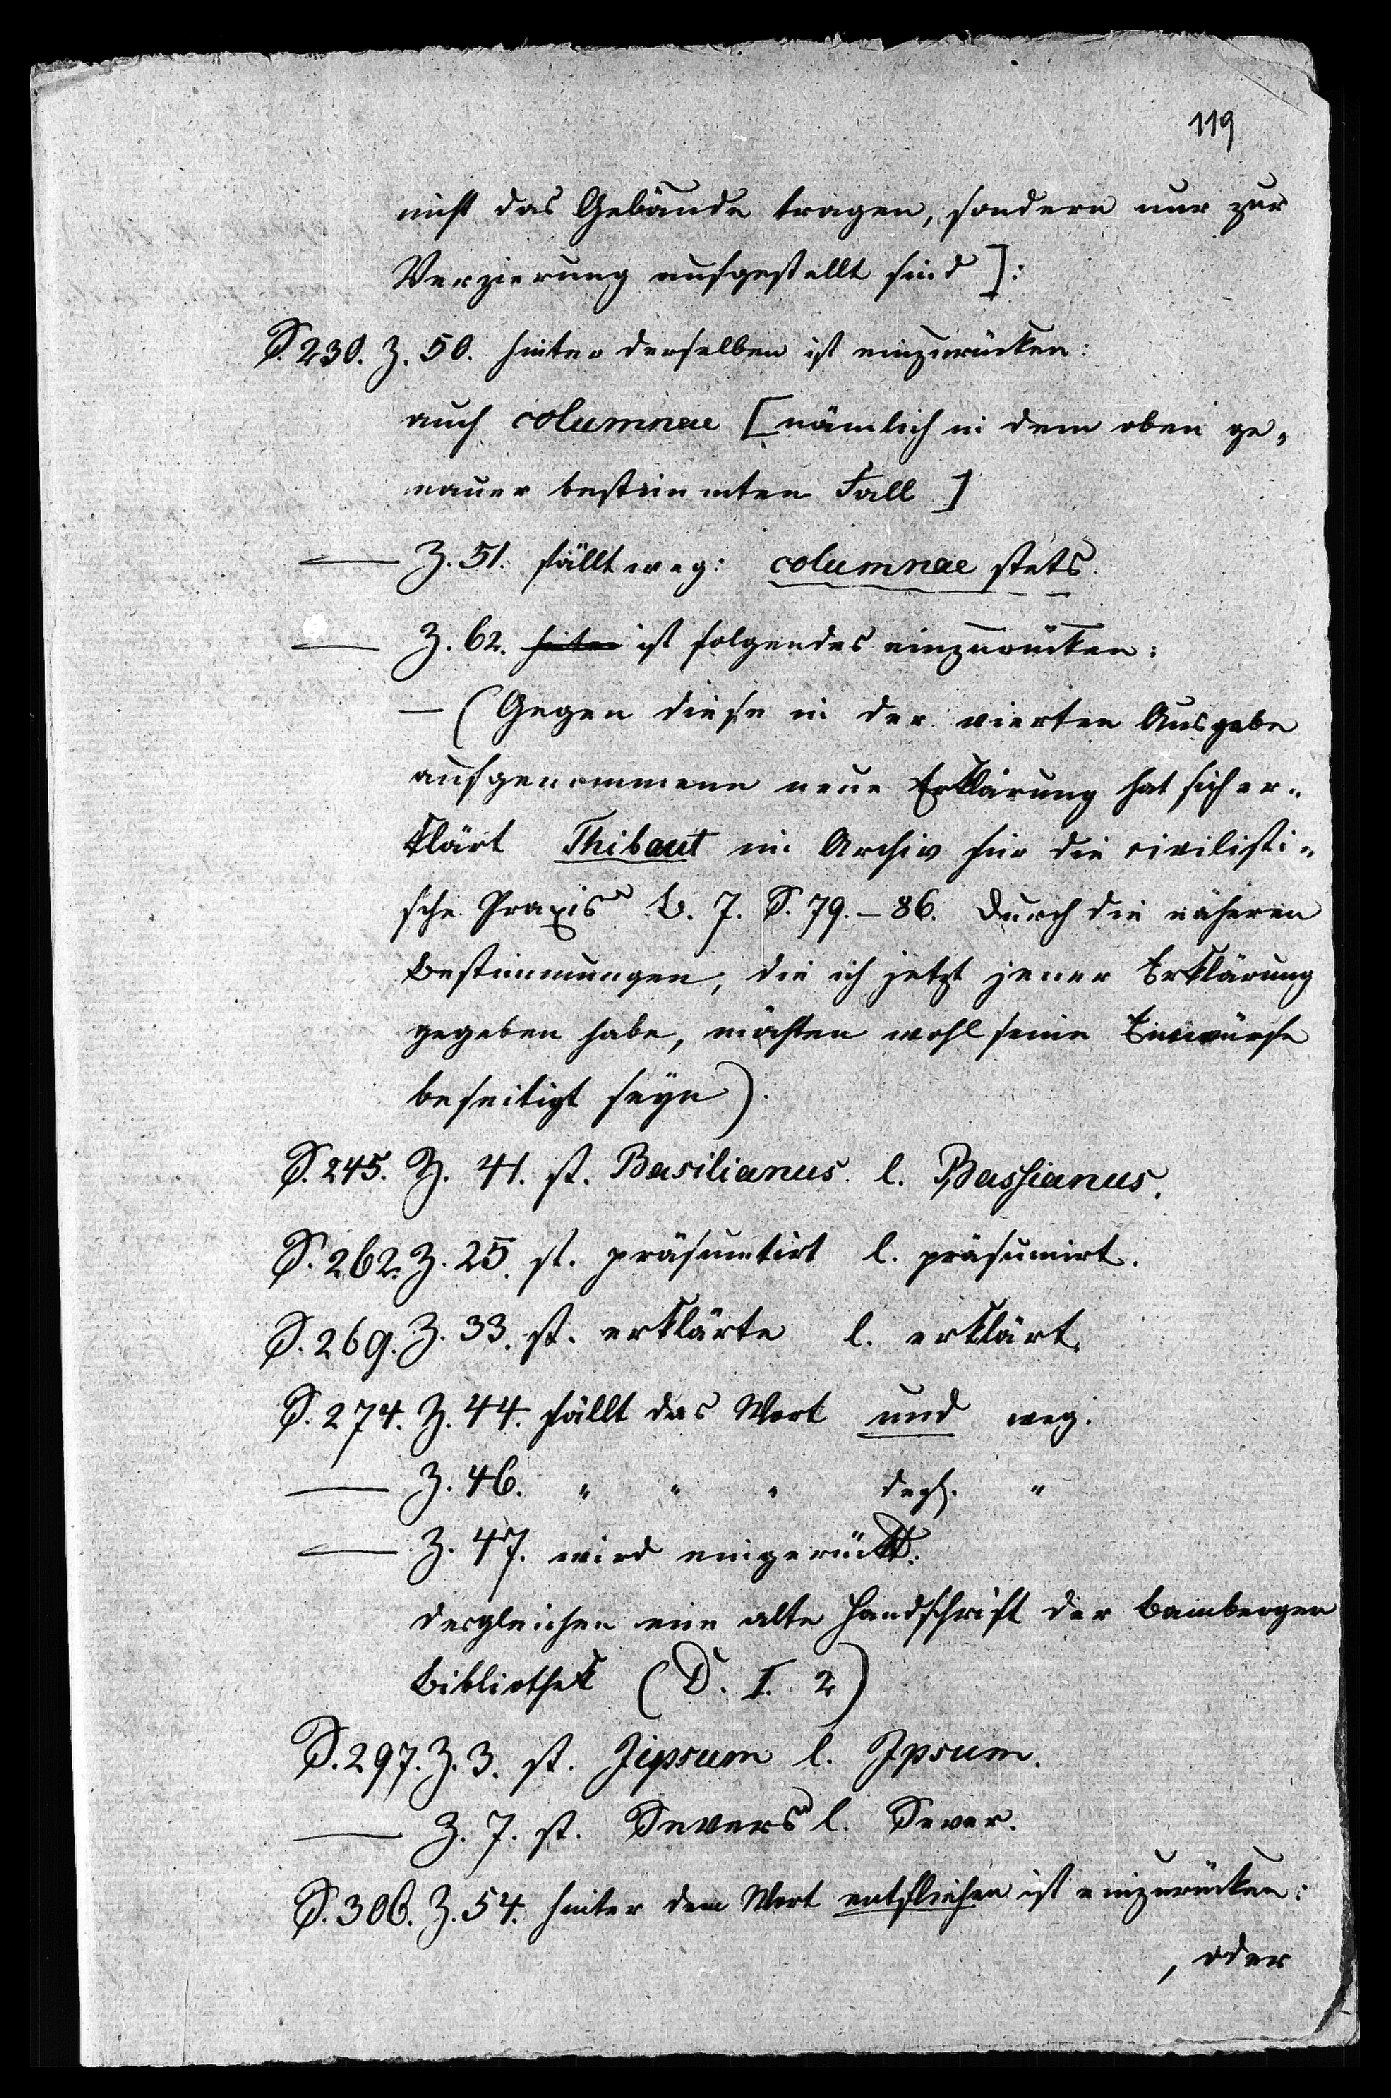 119
nicht das Gebäude tragen, sondern nur zur
Verzierung aufgestellt sind]:
S. 230. Z. 50. hinter derselben ist einzurücken:
auch columnae [nämlich in dem oben ge„
nauer bestimmten Fall]
— Z. 51. fällt weg: columnae stets.
— Z. 62. hinter ist folgendes einzurücken:
— (Gegen diese in der vierten Ausgabe
aufgenommene neue Erklärung hat sich er„
klärt Thibaut im Archiv für die civilisti„
sche Praxis B. 7. S. 79.–86. Durch die näheren
Bestimmungen, die ich jetzt jener Erklärung
gegeben habe, möchten wohl seine Einwürfe
beseitigt seyn).
S. 245. Z. 41. st. Basilianus. l. Bassianus.
S. 262. Z. 25. st. präsumtirt l. präsumirt.
S. 269. Z. 33. st. erklärte l. erklärt.
S. 274. Z. 44. fällt das Wort und weg.
— Z. 46. „ „ „ degl. „
— Z. 47. wird eingerückt:
desgleichen eine alte Handschrift der Bamberger
Bibliothek (D. I. 2)
S. 297. Z. 3. st. Jipsum l. Ipsum.
— Z. 7. st. Severs l. Sever.
S. 306. Z. 54. hinter dem Wort entfliehen ist einzurücken:
, oder